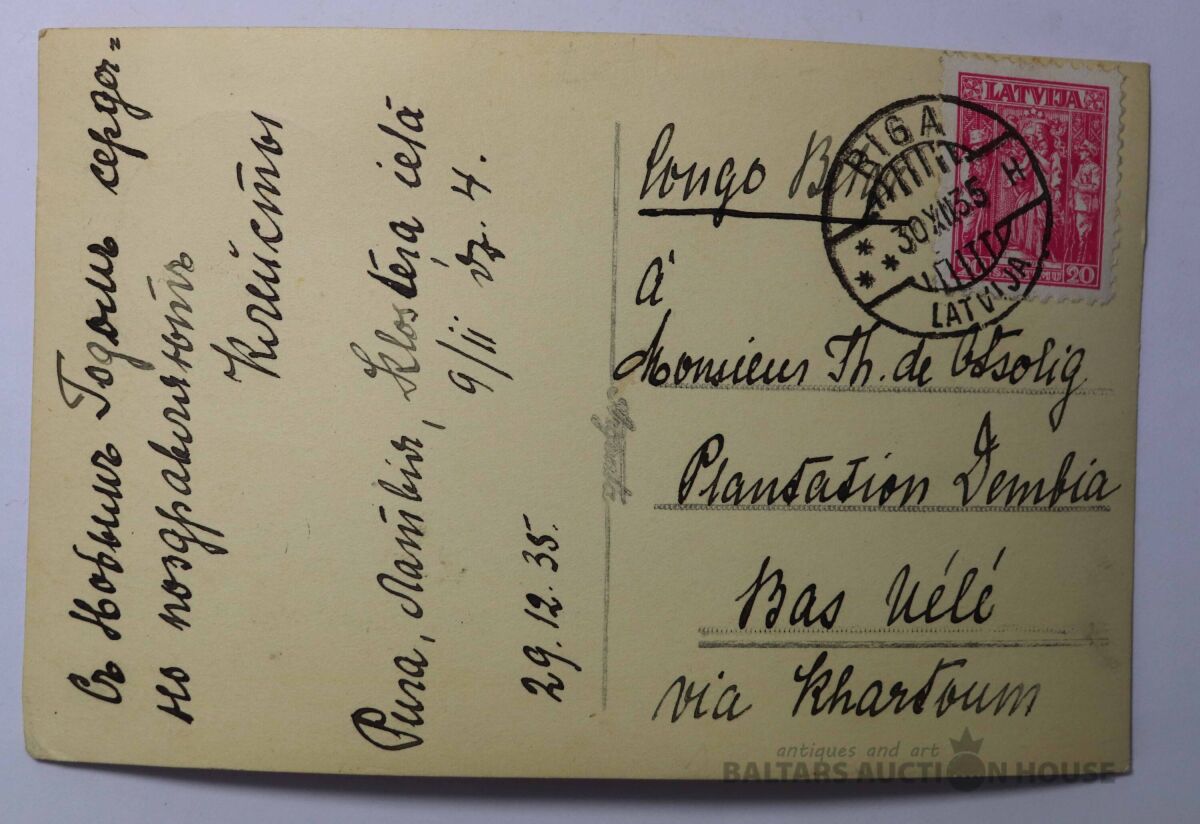 Съ Новымъ Годомъ сердеч-
но поздравляютъ
Клейсты
Рига, Латвія, Klostera ielā
9/11 dz. 4.
29.12.35.
Congo
à
Monsieur Th. de Ossolig
Plantation Dembia
Bas Uélé
via Khartoum
LATVIJA
20
RIGA
30 XII 35
H
LATVIJA
antiques and art
BALTARS AUCTION HOUSE